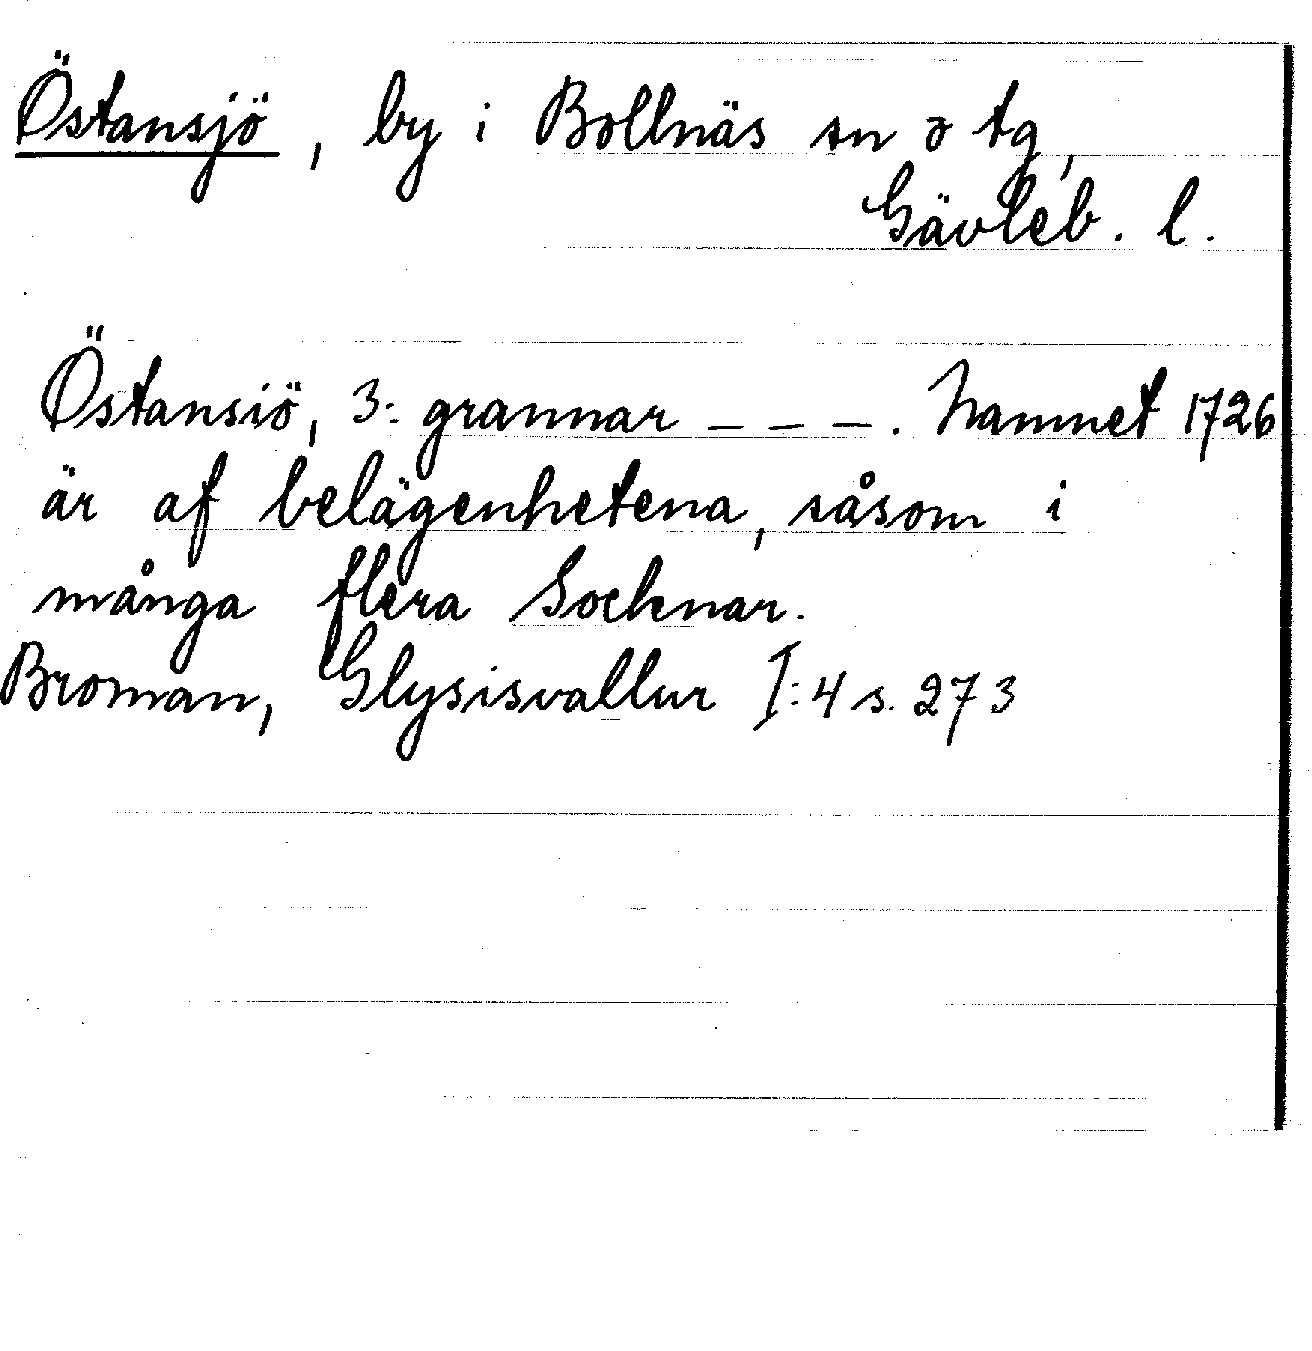 Östansjö, by i Bollnäs sn o tg,
Gävleb. l.
Östansiö, 3: grannar _ _ _. Namnet 1726
är af belägenhetena, såsom i
många flera Socknar.
Broman, Glysisvallur I:4 s. 273